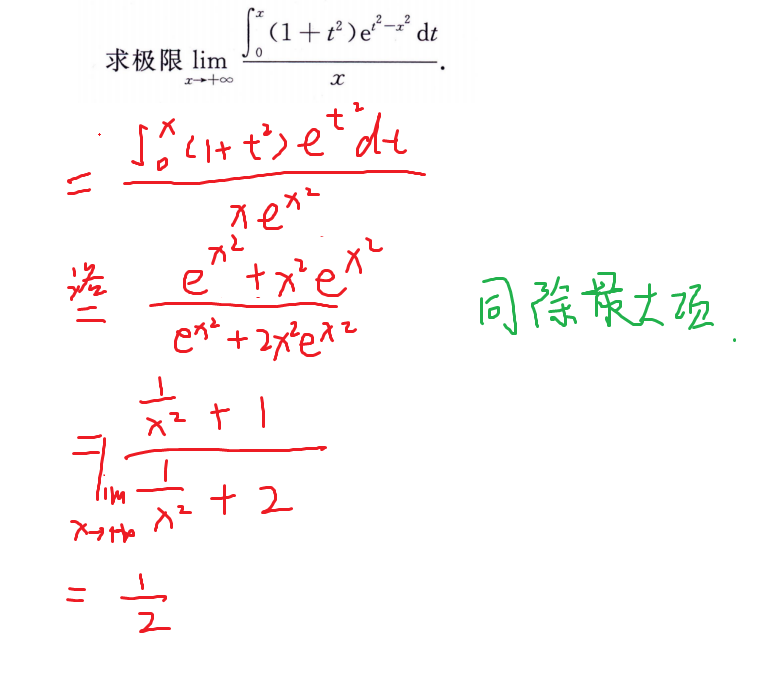 求极限 lim_{x→+∞} \frac{∫_0^x (1+t²)e^{t²-x²} dt}{x}.
= \frac{∫_0^x (1+t²)e^{t²} dt}{x e^{x²}}
洛
= \frac{e^{x²} + x²e^{x²}}{e^{x²} + 2x²e^{x²}} 同除最大项.
= lim_{x→+∞} \frac{\frac{1}{x²} + 1}{\frac{1}{x²} + 2}
= \frac{1}{2}